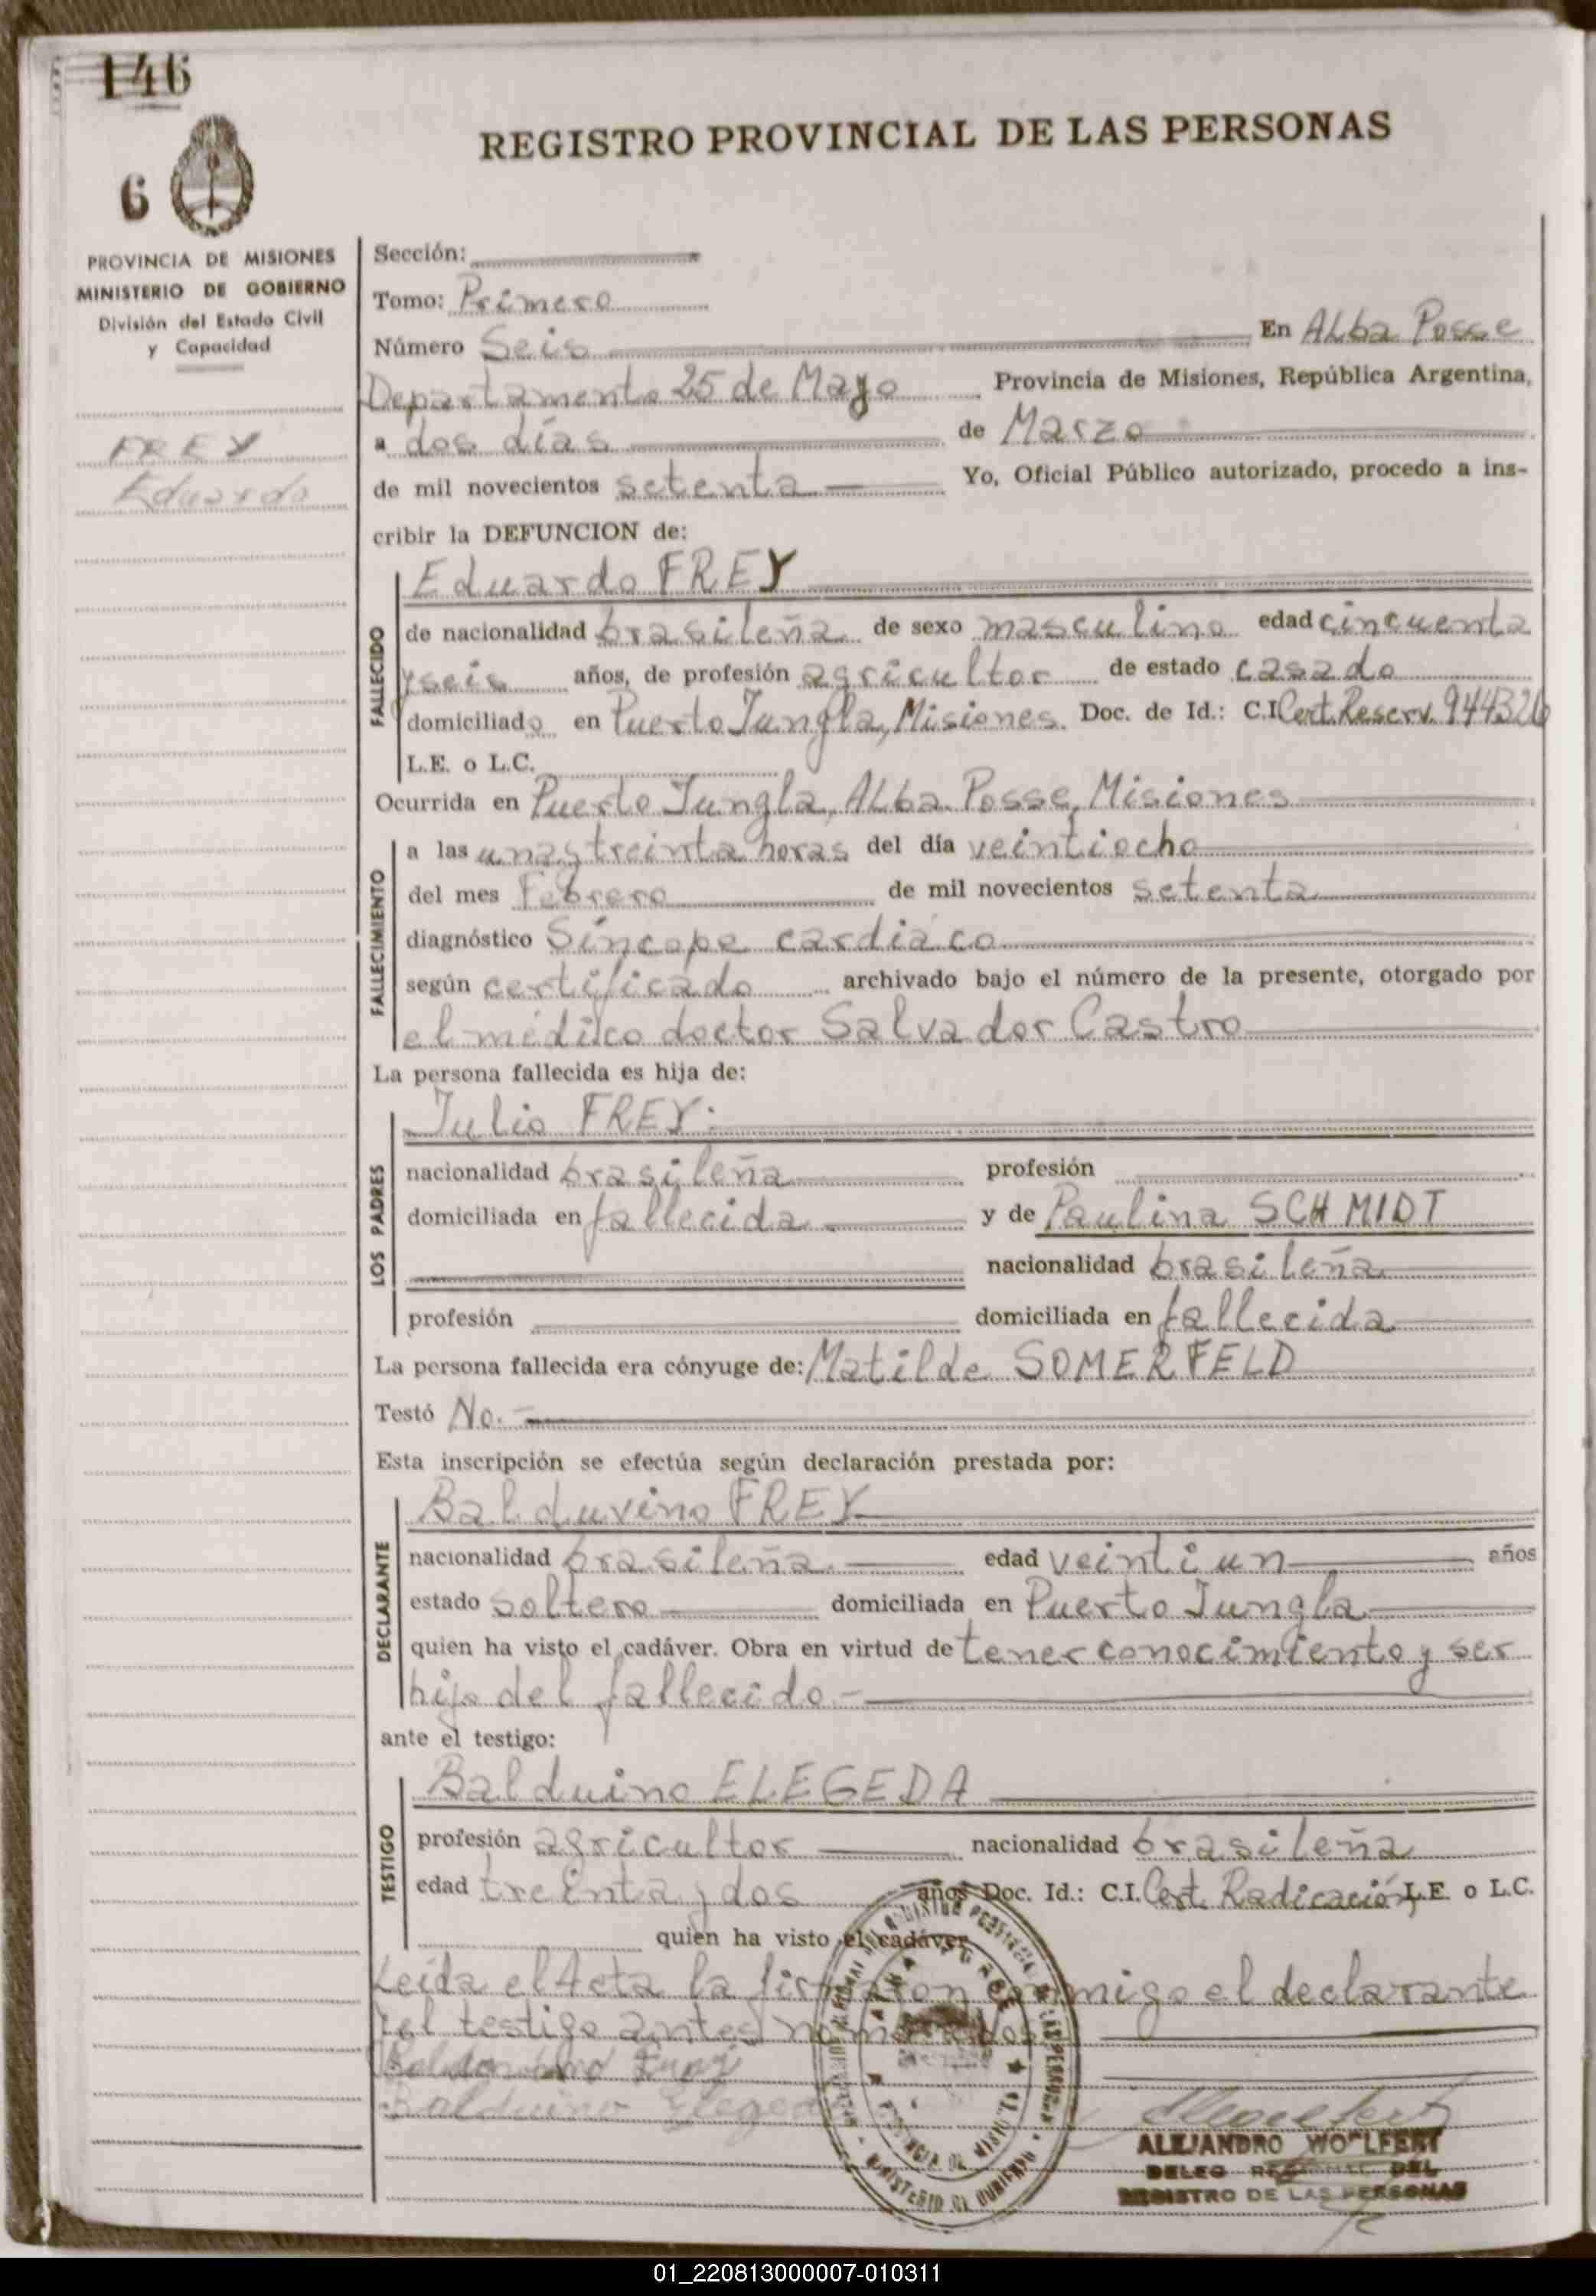 146
6
REGISTRO PROVINCIAL DE LAS PERSONAS
PROVINCIA DE MISIONES
MINISTERIO DE GOBIERNO
División del Estado Civil
y Capacidad
FREY
Eduardo
Sección:
Tomo: Primero
Número Seis En Alba Posse
Departamento 25 de Mayo Provincia de Misiones, República Argentina,
a dos días de Marzo
de mil novecientos setenta Yo, Oficial Público autorizado, procedo a ins-
cribir la DEFUNCION de:
FALLECIDO
Eduardo FREY
de nacionalidad brasileña de sexo masculino edad cincuenta
y seis años, de profesión agricultor de estado casado
domiciliado en Puerto Jungla, Misiones. Doc. de Id.: C.I. Cert. Reserv. 944326
L.E. o L.C.
Ocurrida en Puerto Jungla, Alba Posse, Misiones
FALLECIMIENTO
a las unas treinta horas del día veintiocho
del mes Febrero de mil novecientos setenta
diagnóstico Síncope cardíaco
según certificado archivado bajo el número de la presente, otorgado por
el médico doctor Salvador Castro
La persona fallecida es hija de:
LOS PADRES
Julio FREY
nacionalidad brasileña profesión
domiciliada en fallecida y de Paulina SCHMIDT
nacionalidad brasileña
profesión domiciliada en fallecida
La persona fallecida era cónyuge de: Matilde SOMERFELD
Testó No.
Esta inscripción se efectúa según declaración prestada por:
DECLARANTE
Balduvino FREY
nacionalidad brasileña edad veintiun años
estado soltero domiciliada en Puerto Jungla
quien ha visto el cadáver. Obra en virtud de tener conocimiento y ser
hijo del fallecido
ante el testigo:
TESTIGO
Balduino ELEGEDA
profesión agricultor nacionalidad brasileña
edad treinta y dos años Doc. Id.: C.I. Cert. Radicación, L.E. o L.C.
quien ha visto el cadáver
Leída el Acta la firmaron conmigo el declarante
y el testigo antes nombrados
Balduino Elegeda
ALEJANDRO WOLFERT
DELEG REGIONAL DEL
REGISTRO DE LAS PERSONAS
01_220813000007-010311